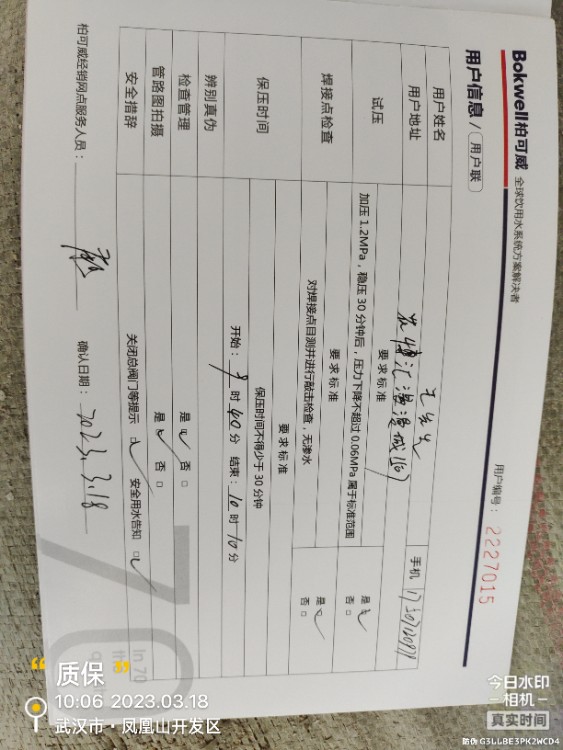 Bokwell柏可威 全球饮用水系统方案解决者
用户编号： 2227015
用户信息 / 用户联
用户姓名 先生
用户地址 汇 漫城 手机
试压 要求标准
加压 1.2MPa，稳压 30 分钟后，压力下降不超过 0.06MPa 属于标准范围 是 ✓ 否 □
焊接点检查 要求标准
对焊接点目测并进行敲击检查，无渗水 是 ✓ 否 □
保压时间 要求标准
保压时间不得少于 30 分钟
开始：9 时 40 分 结束：10 时 10 分
辨别真伪
检查管理 是 ✓ 否 □
管路图拍摄 是 ✓ 否 □
安全措辞 关闭总阀门等提示 □✓ 安全用水告知 □✓
柏可威经销网点服务人员： 确认日期：2023.3.18
70
In 70
“ 质保 ”
10:06 2023.03.18
武汉市·凤凰山开发区
今日水印
相机
真实时间
防伪 G3LLBE3PK2WCD4